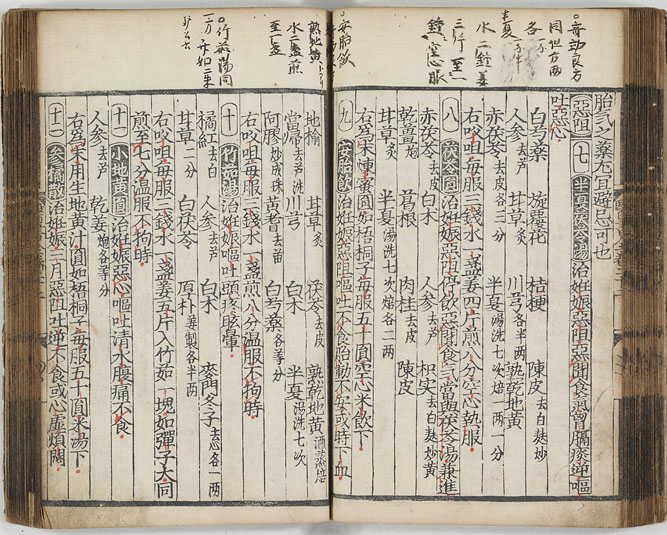 ○奇効良方
同但方両
各一分
半夏一方半
水二鍾姜
三片至一
鍾空心服
○安胎飲
熟地黄
水二盞煎
至一盞
○竹茹湯同
胎氣之藥尤宜避忌可也
惡阻 七 半夏茯苓湯 治姙娠惡阻惡聞食氣胷膈痰逆嘔
吐惡心
白芍藥 旋覆花 桔梗 陳皮去白麩炒
人參去芦 甘草炙 川芎各半兩 熟乾地黃
赤茯苓去皮各三分 半夏湯洗七次焙一兩一分
右㕮咀每服三錢水一盞姜四片煎八分空心熱服
八 茯苓圓 治姙娠惡阻停飲惡聞食氣當與茯苓湯兼進
赤茯苓去皮 白朮 人參去芦 枳实去白麩炒黄
乾薑炮 葛根 肉桂去皮 陳皮
甘草炙 半夏湯洗七次焙各一兩
右爲末煉蜜圓如梧桐子每服五十圓空心米飲下
九 安胎飲 治姙娠惡阻嘔吐不食胎動不安或時下血
地榆 甘草炙 茯苓去皮 熟乾地黄酒蒸焙
當歸去芦洗 川芎 白朮 半夏湯洗七次
阿膠炒成珠 黄耆去苗 白芍藥各等分
右㕮咀每服三錢水一盞煎八分温服不拘時
十 竹茹湯 治姙娠嘔吐頭疼眩暈
橘紅去白 人參去芦 白朮 麥門冬子去心各一兩
甘草一分 白茯苓 厚朴姜製各半兩
右㕮咀每服三錢水一盞姜五片入竹茹一塊如彈子大同
煎至七分温服不拘時
十一 小地黃圓 治姙娠惡心嘔吐清水腹痛不食
人參去芦 乾姜炮各等分
右爲末用生地黃汁圓如梧桐子每服五十圓米湯下
十二 參橘散 治姙娠三月惡阻吐逆不食或心虛煩悶